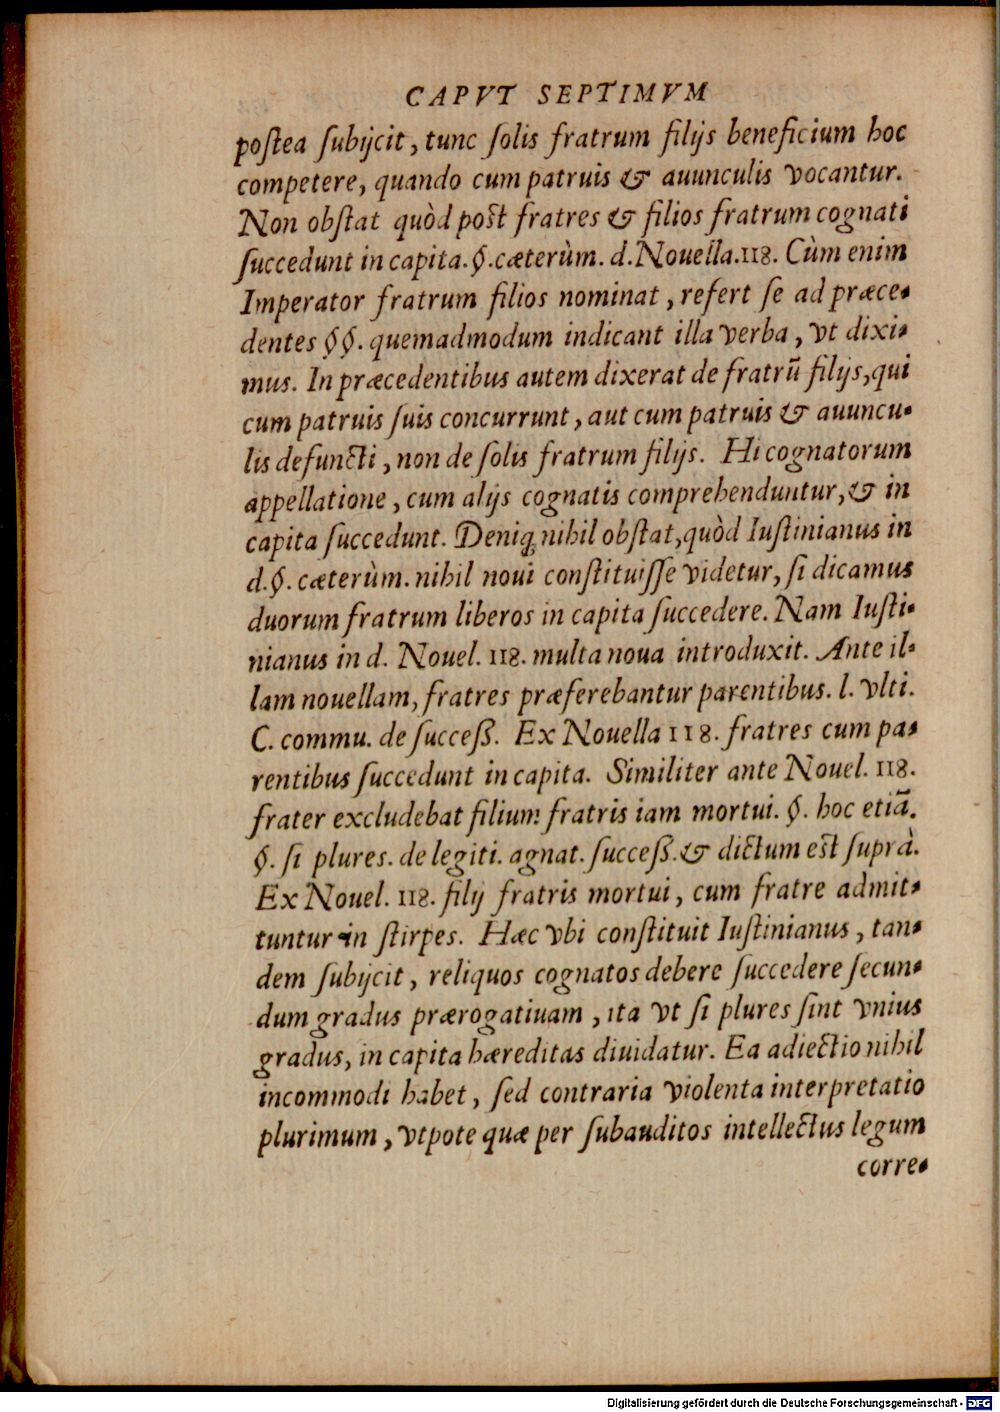 CAPVT SEPTIMVM
poſtea ſubijcit, tunc ſolis fratrum filijs beneficium hoc
competere, quando cum patruis & auunculis vocantur.
Non obſtat quòd poſt fratres & filios fratrum cognati
ſuccedunt in capita. §. cæterùm. d. Nouella. 118. Cùm enim
Imperator fratrum filios nominat, refert ſe ad præce-
dentes §§. quemadmodum indicant illa verba, vt dixi-
mus. In præcedentibus autem dixerat de fratrū filijs, qui
cum patruis ſuis concurrunt, aut cum patruis & auuncu-
lis defuncti, non de ſolis fratrum filijs. Hi cognatorum
appellatione, cum alijs cognatis comprehenduntur, & in
capita ſuccedunt. Deniq; nihil obſtat, quòd Iuſtinianus in
d. §. cæterùm. nihil noui conſtituiſſe videtur, ſi dicamus
duorum fratrum liberos in capita ſuccedere. Nam Iuſti-
nianus in d. Nouel. 118. multa noua introduxit. Ante il-
lam nouellam, fratres præferebantur parentibus. l. vlti.
C. commu. de ſucceß. Ex Nouella 118. fratres cum pa-
rentibus ſuccedunt in capita. Similiter ante Nouel. 118.
frater excludebat filium fratris iam mortui. §. hoc etiā.
§. ſi plures. de legiti. agnat. ſucceß. & dictum eſt ſuprà.
Ex Nouel. 118. filij fratris mortui, cum fratre admit-
tuntur in ſtirpes. Hæc vbi conſtituit Iuſtinianus, tan-
dem ſubijcit, reliquos cognatos debere ſuccedere ſecun-
dum gradus prærogatiuam, ita vt ſi plures ſint vnius
gradus, in capita hæreditas diuidatur. Ea adiectio nihil
incommodi habet, ſed contraria violenta interpretatio
plurimum, vtpote quæ per ſubauditos intellectus legum
corre-
Digitalisierung gefördert durch die Deutsche Forschungsgemeinschaft - DFG